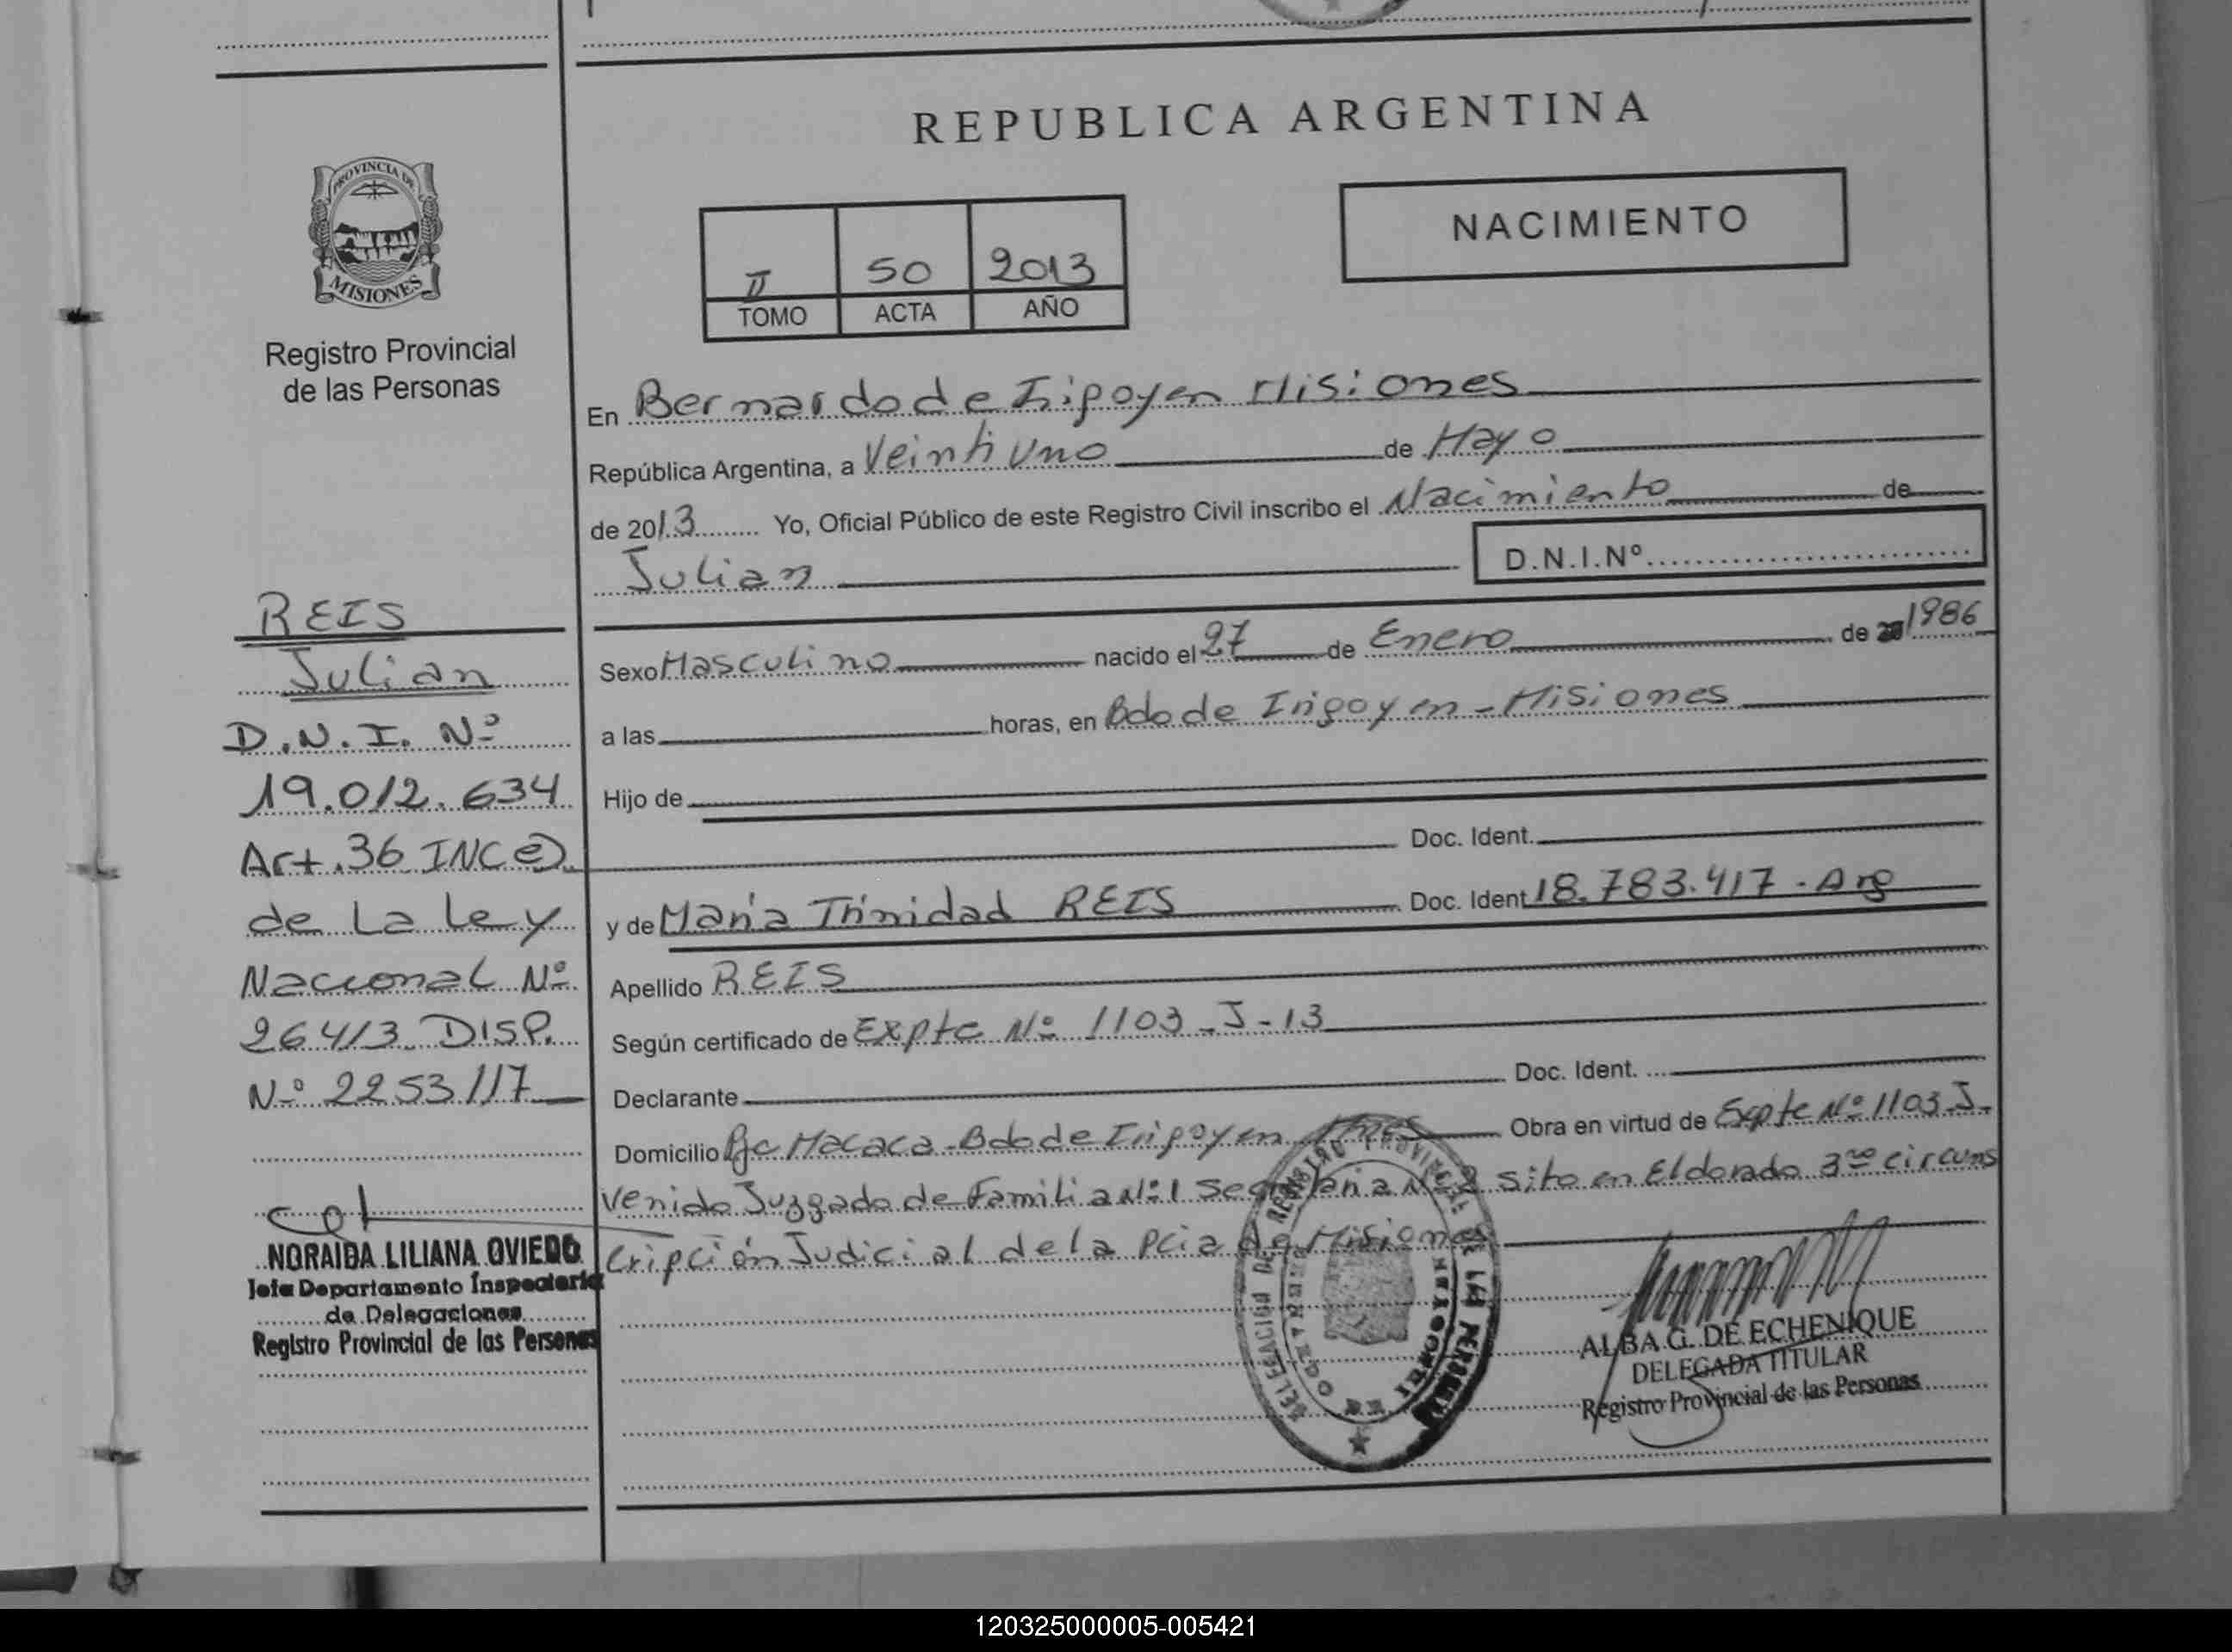 REPUBLICA ARGENTINA
PROVINCIA DE
MISIONES
Registro Provincial
de las Personas
NACIMIENTO
II 50 2013
TOMO ACTA AÑO
En Bernardo de Irigoyen Misiones
República Argentina, a Veintiuno de Mayo
de 2013 Yo, Oficial Público de este Registro Civil inscribo el Nacimiento de
Julian D.N.I.Nº
Sexo Masculino nacido el 27 de Enero de 1986
a las horas, en Bdo de Irigoyen - Misiones
Hijo de
Doc. Ident.
y de Maria Trinidad REIS Doc. Ident 18.783.417 - Arg
Apellido REIS
Según certificado de Expte Nº 1103 - J - 13
Declarante Doc. Ident.
Domicilio Pje Macaca - Bdo de Irigoyen Mnes Obra en virtud de Expte Nº 1103 - J -
venido Juzgado de Familia Nº 1 Secretaria Nº 2 sito en Eldorado 3ra circuns
cripción Judicial de la Pcia de Misiones
REIS
Julian
D.N.I. Nº
19.012.634
Art. 36 INC e)
de La Ley
Nacional Nº
26413 DISP.
Nº 2253/17
NORAIDA LILIANA OVIEDO
Jefa Departamento Inspectoria
de Delegaciones
Registro Provincial de las Personas
DELEGACION DE REGISTRO PROVINCIAL DE LAS PERSONAS
ALBA G. DE ECHENIQUE
DELEGADA TITULAR
Registro Provincial de las Personas
120325000005-005421